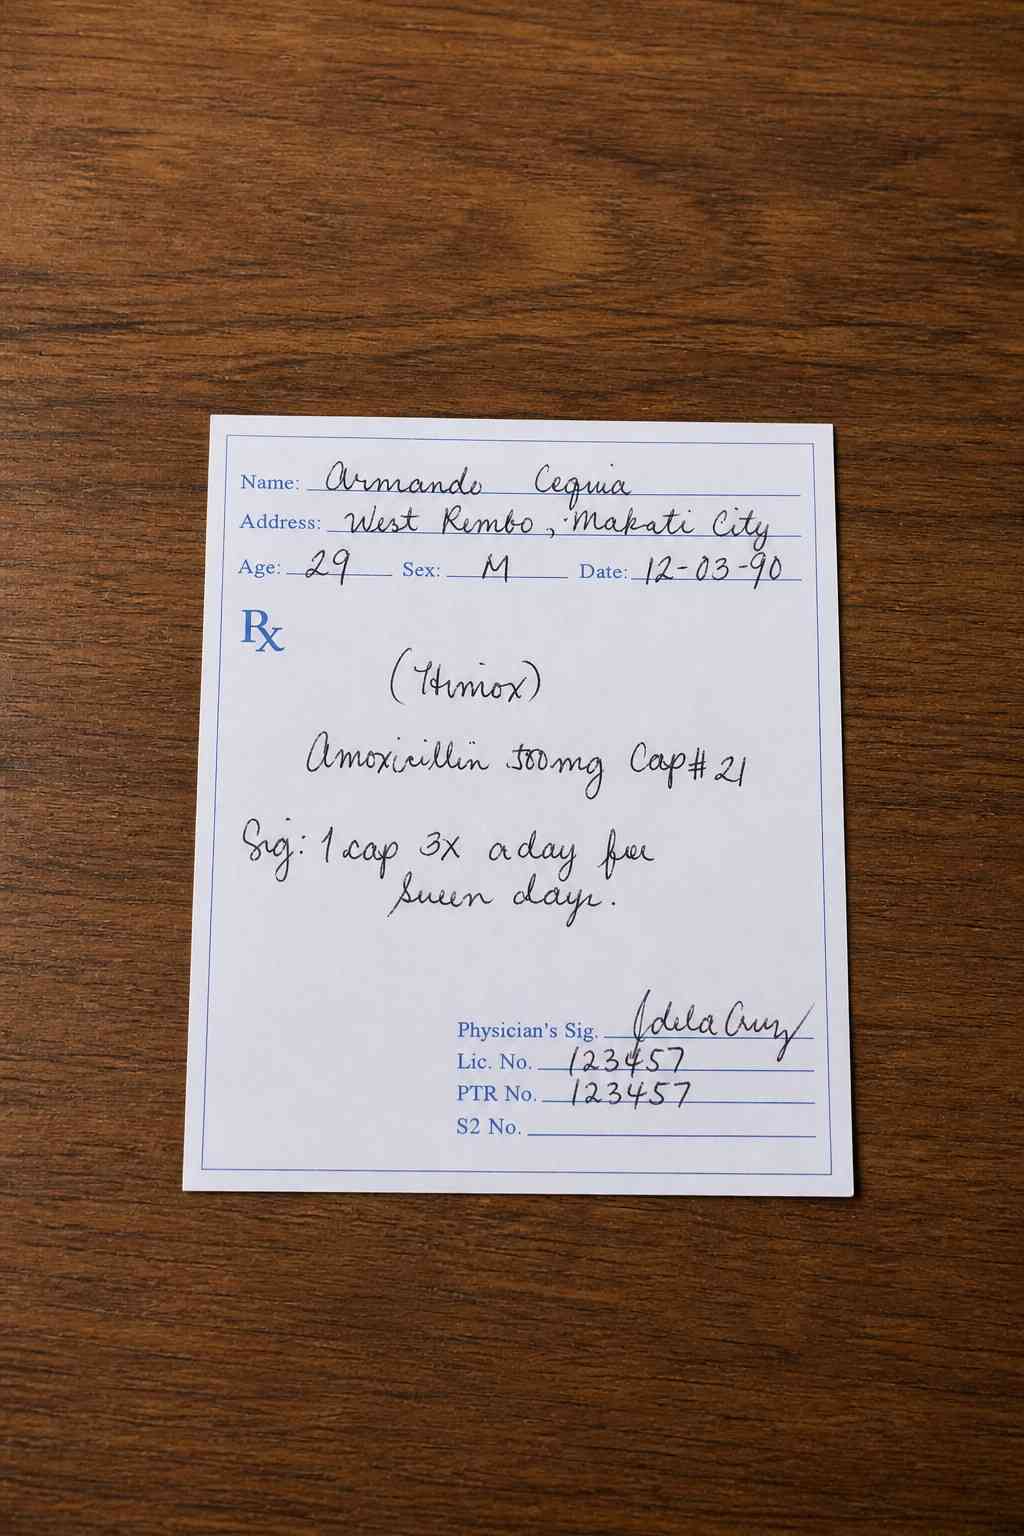 Name: Armando Cequia
Address: West Rembo, Makati City
Age: 29 Sex: M Date: 12-03-90
Rx
(Himox)
Amoxicillin 500mg Cap #21
Sig: 1 cap 3x a day for
seven days.
Physician's Sig. Jdela Cruz
Lic. No. 123457
PTR No. 123457
S2 No.